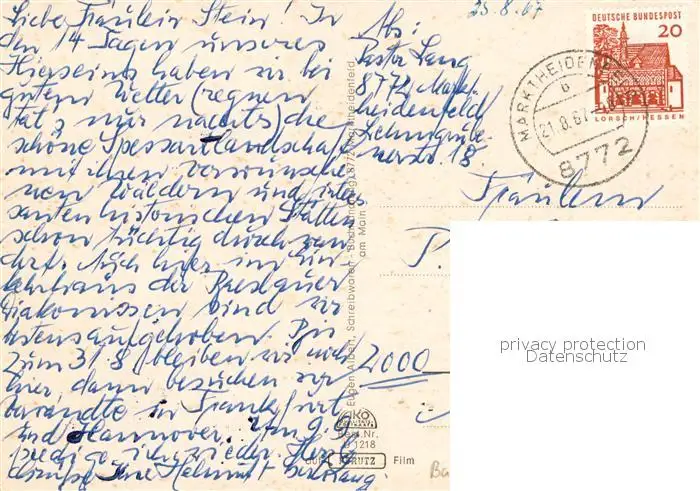 Liebe Fräulein Stein! In
den 14 Tagen unseres
Hierseins haben wir bei
gutem Wetter (regnen
tat's nur nachts) die
schöne Spessartlandschaft
mit ihren verwunsche-
nen Wäldern und inter-
santen historischen Stätten
schon tüchtig durchwan-
dert. Auch hier im Ein-
kehrhaus der
Diakonissen sind wir
bestens aufgehoben. Bis
zum 31.8. bleiben wir noch
hier, dann besuchen wir
Verwandte in Frankfurt
und Hannover. Am 9.9.
predige ich wieder. Herz-
Ihre Helmut
25.8.67
Abs:
Pastor Lang
8772 Markt-
heidenfeld
Lehmgrube-
nerstr. 18
DEUTSCHE BUNDESPOST
20
LORSCH/HESSEN
MARKTHEIDENFELD
b
21.8.67
8772
Fräulein
P.
2000
Eugen Albert, Schreibwaren - Buchhandlung, 8772 Marktheidenfeld
am Main
Best.Nr.
D 1218
KRUTZ Film
privacy protection
Datenschutz